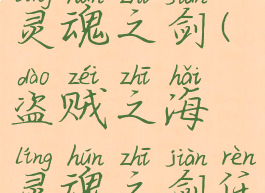 灵魂之剑(
dào zéi zhī hǎi
盗贼之海
líng hún zhī jiàn rèn
灵魂之剑